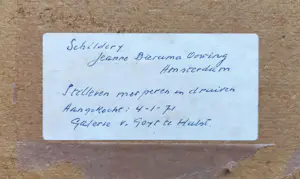 Schildery
Jeanne Bieruma Oosting
Amsterdam
Stilleven met peren en druiven
Aangekocht: 4-1-71
Galerie v. Geyt te Hulst